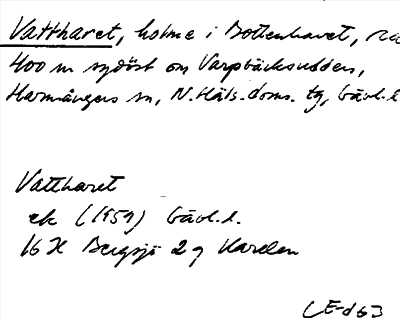 Vattharet, holme i Bottenhavet, ca
400 m sydöst om Varpbäcksudden,
Harmångers sn, N. Häls. doms. tg, Gävl. l.
Vattharet
ek (1959) Gävl. l.
16 H Bergsjö 2 g Kartan